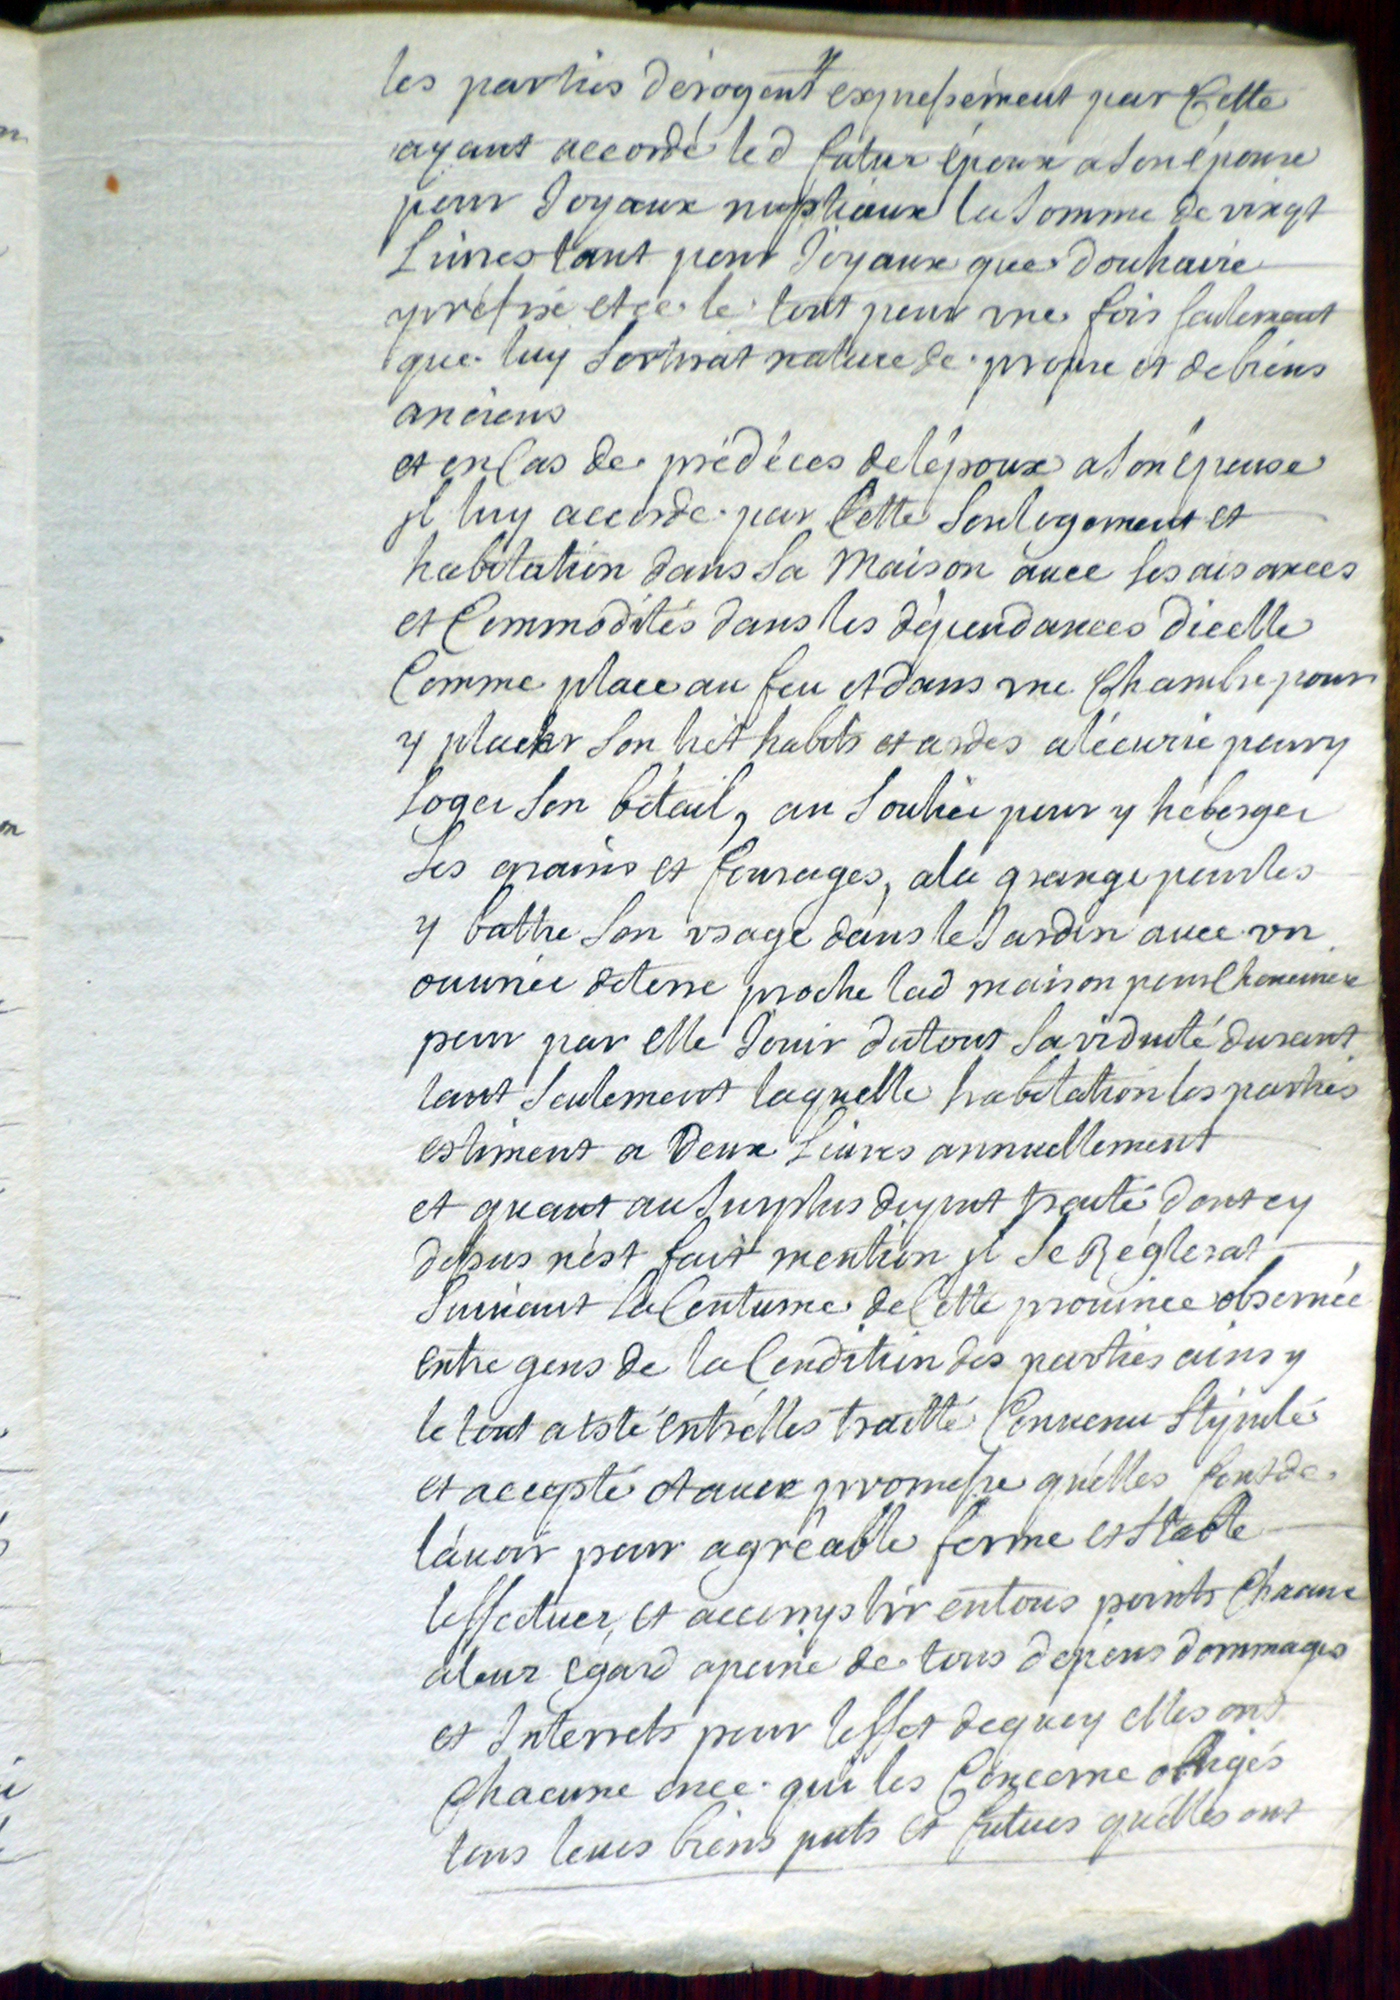 les parties dérogent expressément par Cette
ayant accordé led futur époux a son épouse
pour Joyaux nuptiaux la Somme de vingt
Livres tant pour Joyaux que douhaire
préfixe et ce le tout pour vne fois seulement
que luy Sortirat nature de propre et de biens
anciens
et en Cas de prédéces de lépoux a son épouse
jl luy accorde par Cette Son logement et
habitation dans Sa Maison auec Ses aisances
et Commodités dans les dépendances dicelle
Comme place au feu et dans vne Chambre pour
y placer Son lict habits et ardes a lécurie pour y
Loger Son bétail, au Soulier pour y héberger
Ses grains et fourages, a la grange pour les
y battre Son vsage dans le Jardin auec vn
ouurée de terre proche lad maison pour Cheneuiere
pour par elle Jouir du tout Sa viduité durant
tant Seulement laquelle habitation les parties
estiment a Deux Liures annuellement
et quant au Surplus du pnt traité dont cy
dessus nést fait mention jl Se Réglerat
Suiuant la Coutume de Cette prouince obseruée
entre gens de la Condition des parties ainsy
le tout a esté entrélles traitté Conuenu Stipulé
et accepté et auec promesse quélles font de
láuoir pour agréable ferme et Stable
leffectuer, et accomplir en tous points Chacune
a leur égard a peine de tous dépens dommages
et Interrets pour leffet de quoy elles ont
Chacune en ce qui les Concerne obligés
tous leurs biens pnts et futurs quélles ont